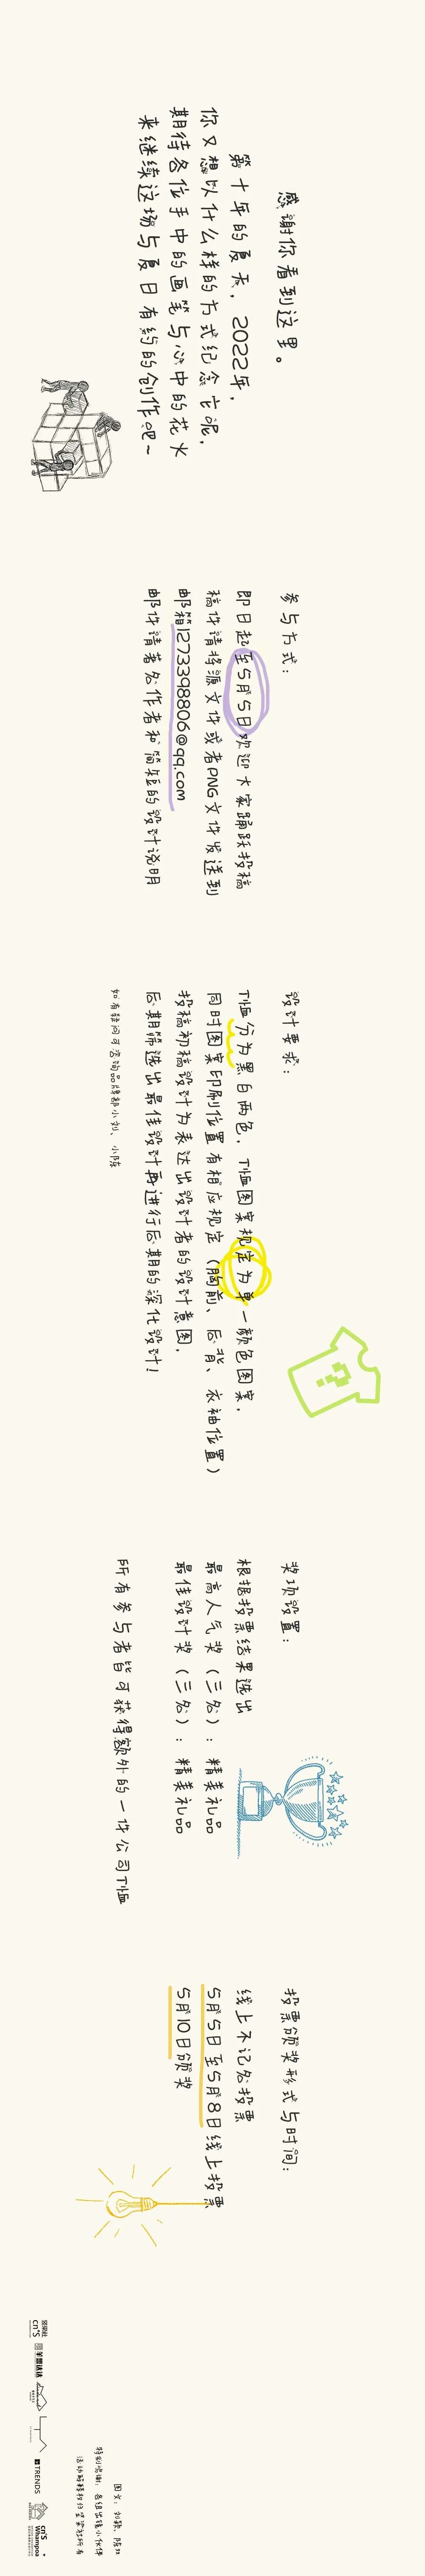 感谢你看到这里。
第十年的夏天，2022年，
你又想以什么样的方式纪念它呢，
期待各位手中的画笔与心中的花火
来继续这场与夏日有约的创作吧~
参与方式：
即日起至5月5日欢迎大家踊跃投稿
稿件请将源文件或者PNG文件发送到
邮箱1273398806@qq.com
邮件请著名作者和简短的设计说明
设计要求：
T恤分为黑白两色，T恤图案规定为单一颜色图案，
同时图案印刷位置有相应规定（胸前、后背、衣袖位置）
投稿初稿设计为表达出设计者的设计意图，
后期筛选出最佳设计再进行后期的深化设计！
如有疑问可咨询品牌部小刘、小陈
奖项设置：
根据投票结果选出
最高人气奖（三名）：精美礼品
最佳设计奖（三名）：精美礼品
所有参与者皆可获得额外的一件公司T恤
投票颁奖形式与时间：
线上不记名投票
5月5日至5月8日线上投票
5月10日颁奖
图文：刘颖、陈
特别感谢：各组出镜小伙伴
活动解释权归竖梁社所有
竖梁社
cn'S
TRENDS
cn'S
Whampoa